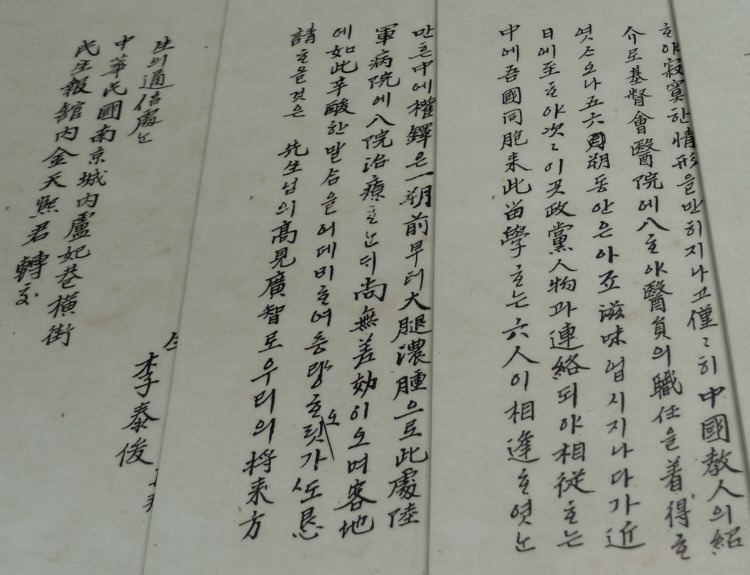 ᄒᆞ야寂寞한情形을만히지나고僅〻히中國敎人의紹
介로基督會醫院에入ᄒᆞ야醫員의職任을着得ᄒᆞ
엿ᄉᆞ오나五六朔동안은아죠滋味업시지나다가近
日에至ᄒᆞ야次〻이곳政黨人物과連絡되야相從ᄒᆞ는
中에吾國同胞来此留學ᄒᆞ는六人이相逢ᄒᆞ엿ᄂᆞ
만흔中에權鐸은一朔前부터大腿濃腫으로此處陸
軍病院에入院治療ᄒᆞᄂᆞᆫ뒤尙無差効이오며客地
에如此辛酸한말삼을어데비ᄒᆞ여층량ᄒᆞ릿가ᄯᅩ懇
請ᄒᆞ올것은 先生님의高見廣智로우리의將来方
生의通信處ᄂᆞᆫ
中華民國南京城内盧妃巷橫街
民生報舘内金天熙君轉交
生 李泰俊